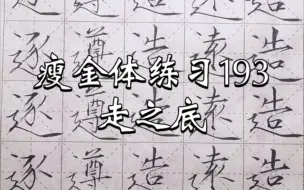 逐 遵 造 遠 造
瘦金体练习193
走之底
逐 遵 造 遠 造